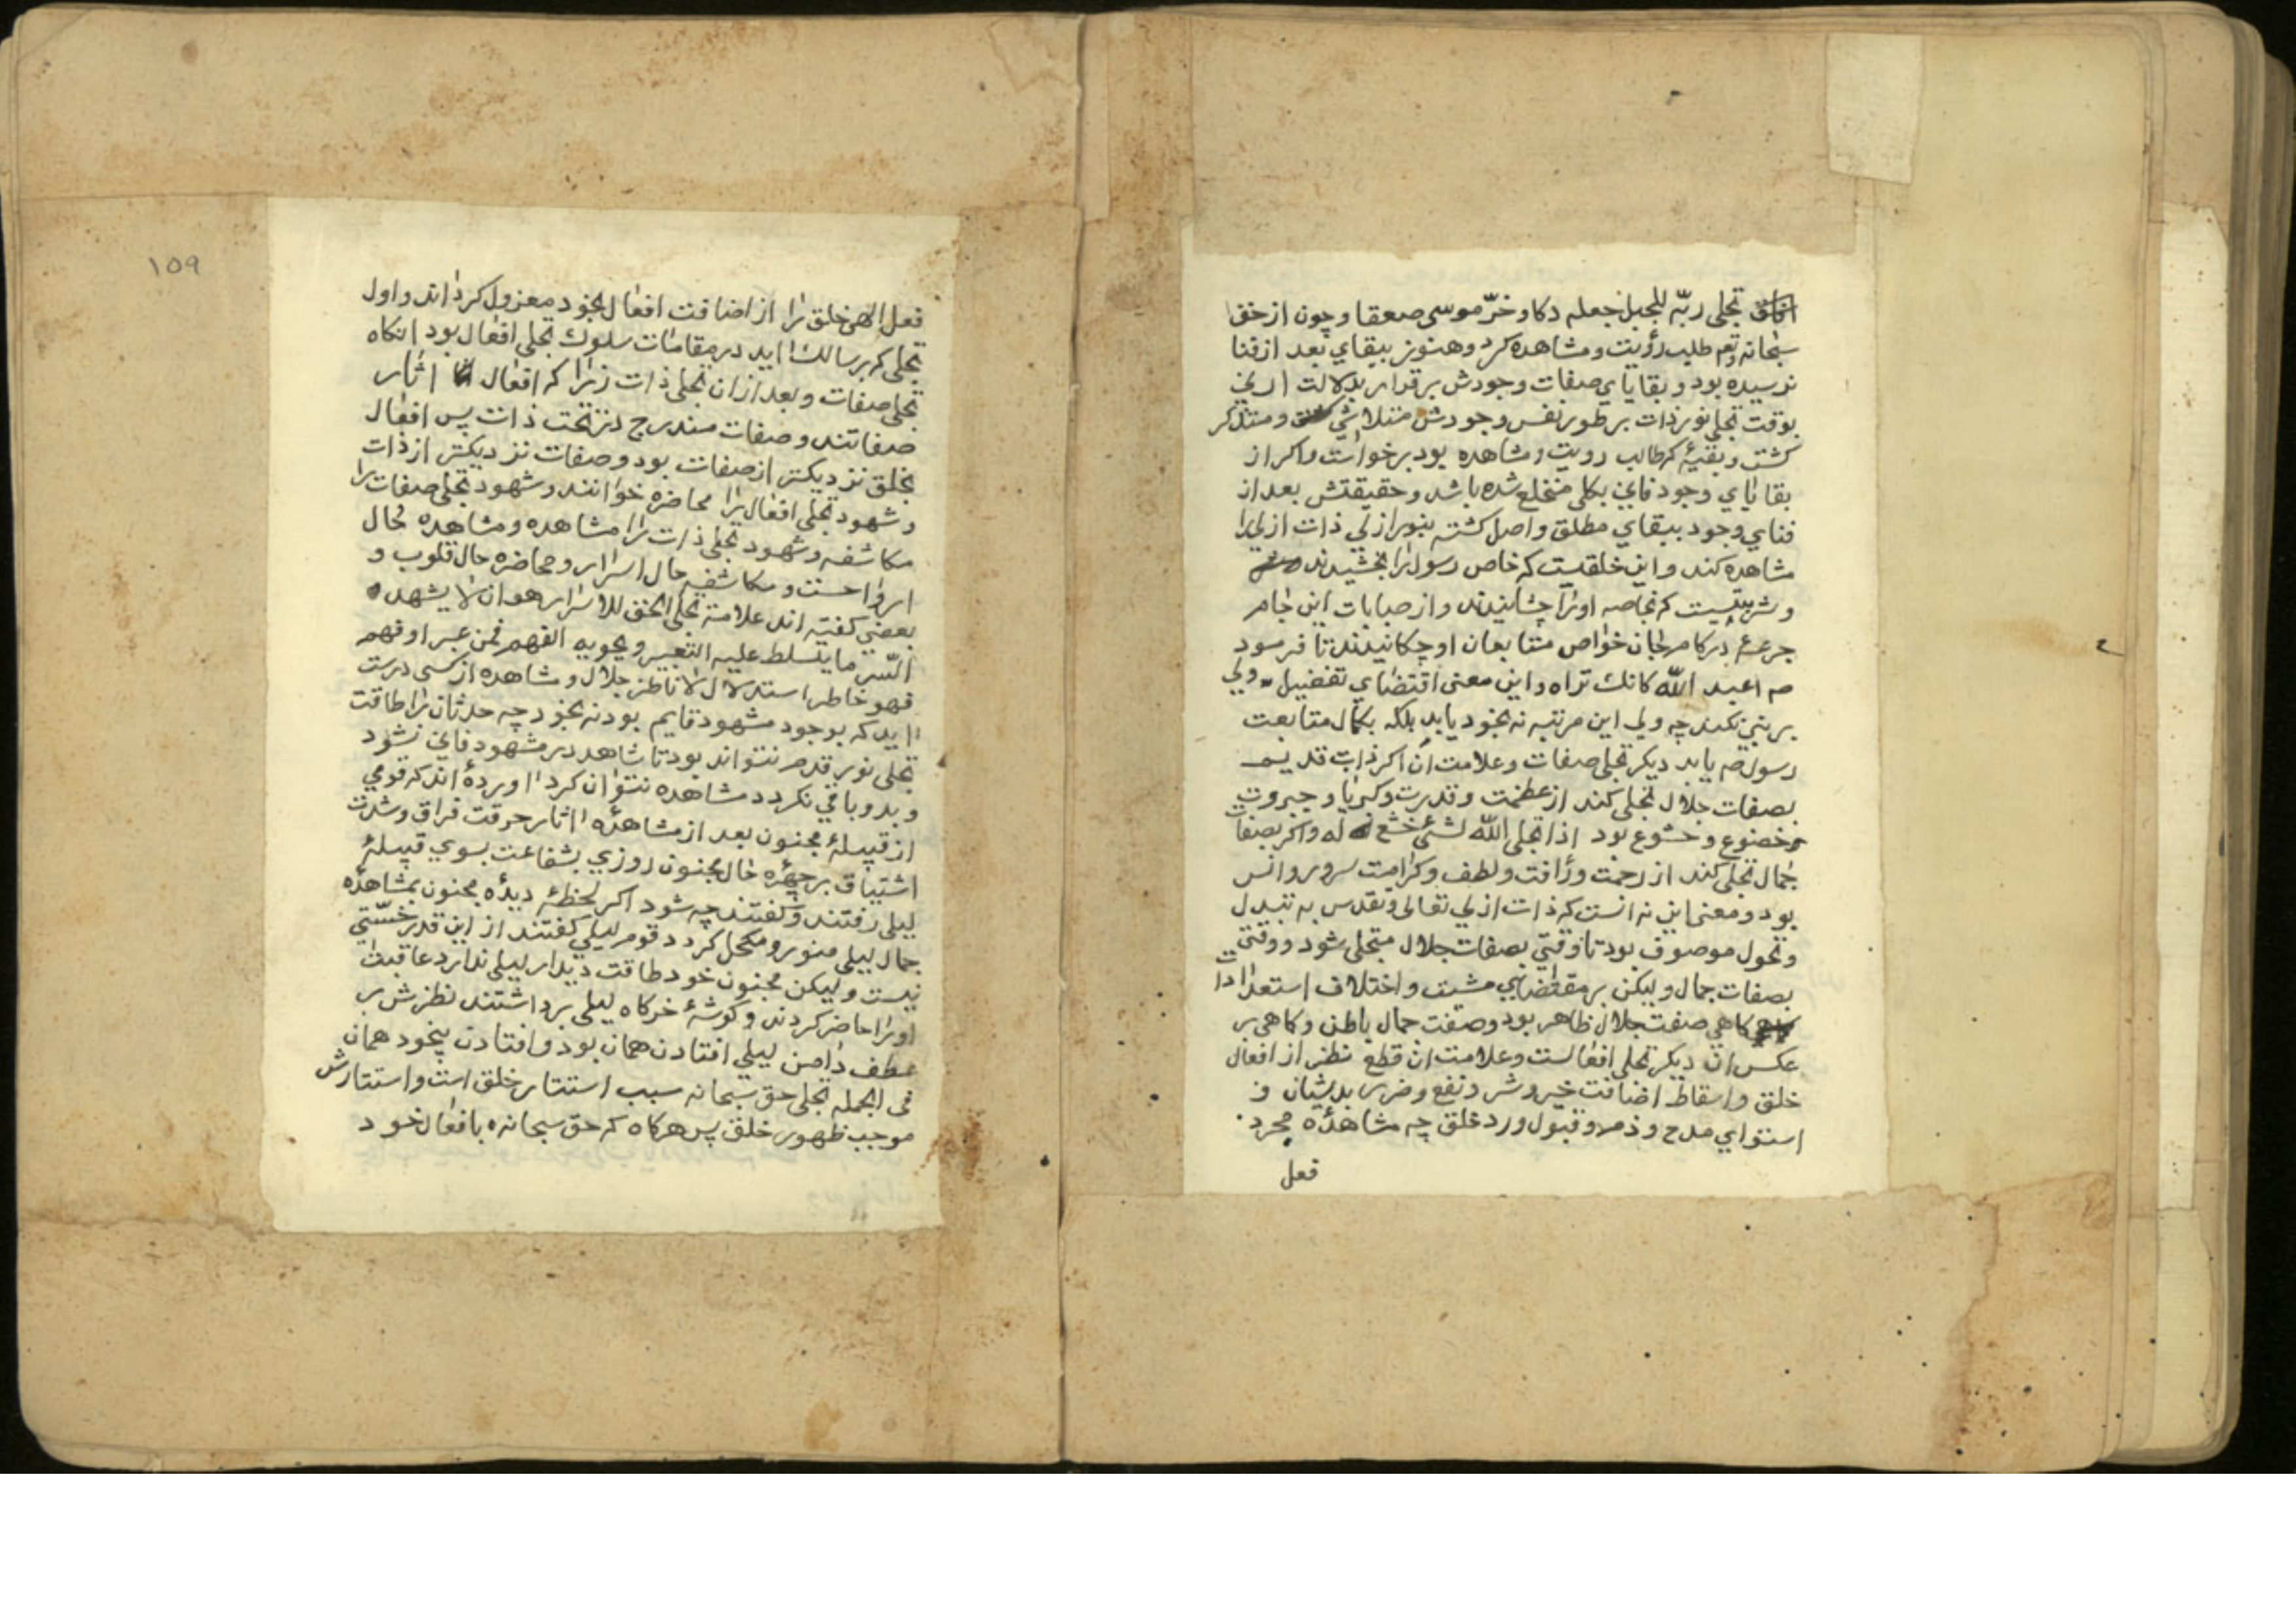 تجلی ربّه للجبل جعله دکا و خرّ موسی صعقا و چون از حق
سبحانه و تع طلب رؤیت و مشاهده کرد و هنوز ببقاي بعد از فنا
نرسیده بود و بقایاي صفات وجودش بر قرار بدلالت ارني
بوقت تجلی نور ذات بر طور نفس وجودش متلاشي و متدکدک
کشت و بقیهٔ که طالب رویت و مشاهده بود برخواست و اکر از
بقایاي وجود فاني بکلی منخلع شده باشد و حقیقتش بعد از
فناي وجود ببقاي مطلق واصل کشته بنور ازلي ذات ازلی را
مشاهده کند و این خلقتیست که خاص رسول را بخشیدند
و شربتیست که بخاصه او را چشانیدند و از صبابات این جام
جرعهٔ در کام جان خواص متابعان او چکانیدند تا فرمود
صم اعبد اللّٰه کانك تراه و این معنی اقتضاي تفضیل ولي
بر نبي نکند چه ولی این مرتبه نه بخود یابد بلکه بکمال متابعت
رسول صم یابد دیکر تجلی صفات و علامت آن اکر ذات قدیم
بصفات جلال تجلی کند از عظمت و قدرت و کبریا و جبروت
خضوع و خشوع بود اذا تجلی اللّٰه لشئ خشع له و اکر بصفات
جمال تجلی کند از رحمت و رأفت و لطف و کرامت سرور و انس
بود و معنی این نه انست که ذات ازلي تعالی و تقدس به تبدل
و تحول موصوف بود تا وقتي بصفات جلال متجلی شود و وقتي
بصفات جمال و لیکن بر مقتضاي مشیت و اختلاف استعدادات
کاهي صفت جلال ظاهر بود و صفت جمال باطن و کاهی بر
عکس ان دیکر تجلی افعالست و علامت ان قطع نظر از افعال
خلق و اسقاط اضافت خیر و شر و نفع و ضرر بدیشان و
استواي مدح و ذم و قبول و رد خلق چه مشاهدهٔ مجرد
فعل
۱۵۹
فعل الهی خلق را از اضافت افعال بخود معزول کرداند و اول
تجلی که بر سالك اید در مقامات سلوك تجلی افعال بود انکاه
تجلی صفات و بعد از ان تجلی ذات زیرا که افعال اثار
صفاتند و صفات مندرج در تحت ذات پس افعال
بخلق نزدیکتر از صفات بود و صفات نزدیکتر از ذات
و شهود تجلی افعال را محاضره خوانند و شهود تجلی صفات را
مکاشفه و شهود تجلی ذات را مشاهده و مشاهده حال
ارواحست و مکاشفه حال اسرار و محاضره حال قلوب و
بعضي کفته اند علامة تجلی الحق للاسرار هو ان لا یشهد
السّر ما یتسلط علیه التعبیر و یحویه الفهم فمن عبر او فهم
فهو خاطر استدلال لا ناظر جلال و مشاهده از کسی درست
اید که بوجود مشهود قایم بود نه بخود چه حدثان را طاقت
تجلی نور قدم نتواند بود تا شاهد در مشهود فاني نشود
و بدو باقي نکردد مشاهده نتوان کرد اوردهٔ اند که قومي
از قبیلهٔ مجنون بعد از مشاهدهٔ اثار حرقت فراق و شدت
اشتیاق بر چهرهٔ حال مجنون روزي بشفاعت بسوي قبیلهٔ
لیلی رفتند و کفتند چه شود اکر لحظهٔ دیدهٔ مجنون بمشاهدهٔ
جمال لیلی منور و مکحل کردد قوم لیلي کفتند از این قدر خسّتي
نیست و لیکن مجنون خود طاقت دیدار لیلی ندارد عاقبت
او را حاضر کردند و کوشهٔ خرکاه لیلی برداشتند نظرش بر
عطف دامن لیلي افتادن همان بود و افتادن بیخود همان
فی الجمله تجلی حق سبحانه سبب استتار خلق است و استتارش
موجب ظهور خلق پس هرکاه که حق سبحانه بافعال خود